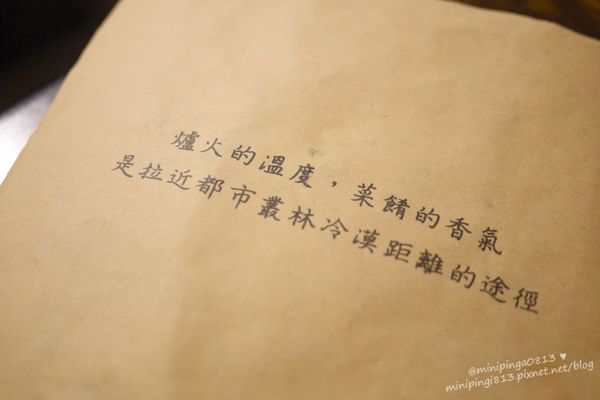 爐火的溫度，菜餚的香氣
是拉近都市叢林冷漠距離的途徑
@minipinga0813 ♥
minipingi813.pixnet.net/blog